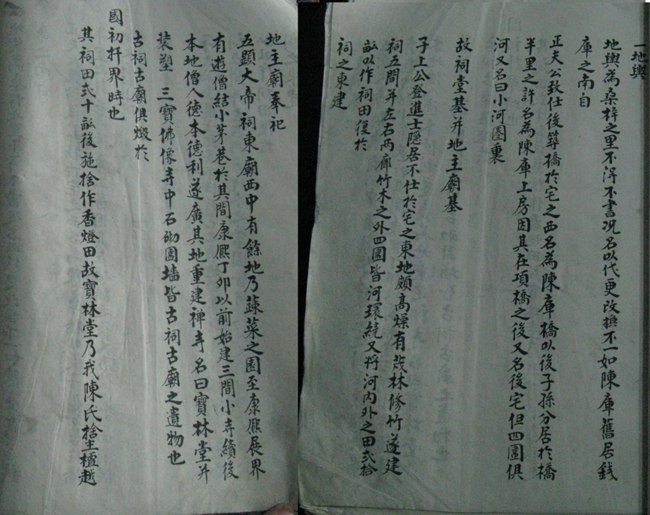 一地輿
地輿為桑梓之里不得不書况名以代更改換不一如陳庫舊居錢
庫之南自
正夫公致仕後築橋於宅之西名為陳庫橋以後子孫分居於橋
半里之許名為陳庫上房因其在項橋之後又名後宅但四圍俱
河又名曰小河圍裏
故祠堂基并地主廟基
子上公登進士隱居不仕於宅之東地頗高燥有茂林修竹遂建
祠五間并左右两廊竹木之外四圍皆河環繞又将河內外之田弍拾
畝以作祠田後於
祠之東建
地主廟奉祀
五顯大帝祠東廟西中有餘地乃蔬菜之園至康熙展界
有遊僧結小茅巷於其間康熙丁卯以前始建三間小寺續後
本地僧人德本德利遂廣其地重建禅寺名曰寶林堂并
装塑三寶佛像寺中石砌圍墻皆古祠古廟之遺物也
古祠古廟俱燬於
國初扦界時也
其祠田弍十畝後施捨作香燈田故寶林堂乃我陳氏捨主檀越